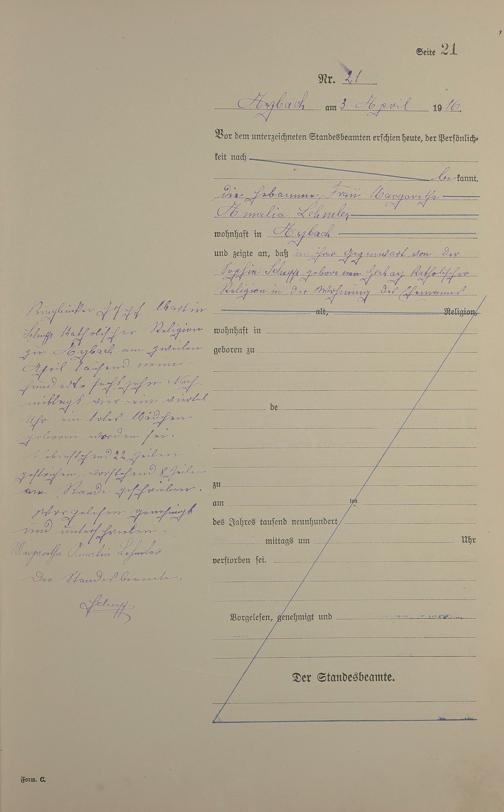 Seite 21
Nr. 21
Asbach am 3 April 1916.
Vor dem unterzeichneten Standesbeamten erschien heute, der Persönlich-
keit nach
be kannt,
die Hebamme, Frau Margarethe
Amalia Lehmler
wohnhaft in Asbach
und zeigte an, daß in ihrer Gegenwart von der
Sophia geborenen katholischer
Religion in der Wohnung des Ehemannes
alt, Religion,
wohnhaft in
geboren zu
de
zu
am ten
des Jahres tausend neunhundert
mittags um Uhr
verstorben sei.
Vorgelesen, genehmigt und
Der Standesbeamte.
katholischer Religion
zu Asbach am zweiten
April tausend neun-
hundert sechszehn Nach-
mittags vier ein viertel
Uhr ein totes Mädchen
geboren worden sei.
22 Zeilen
gestrichen, vorstehend Zeilen
am Rande geschrieben.
Vorgelesen genehmigt
und unterschrieben.
Margaretha Amalia Lehmler
Der Standesbeamte.
Form. C.